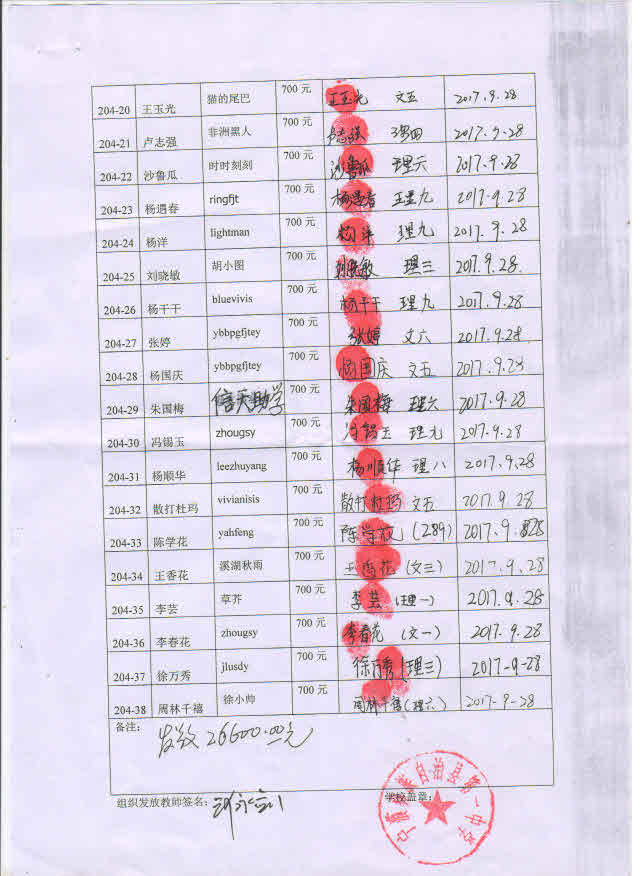 204-20 王玉光 猫的尾巴 700 元 王玉光 文五 2017.9.28
204-21 卢志强 非洲黑人 700 元 卢志强 理四 2017.9.28
204-22 沙鲁瓜 时时刻刻 700 元 沙鲁瓜 理六 2017.9.28
204-23 杨遇春 ringfjt 700 元 杨遇春 理九 2017.9.28
204-24 杨洋 lightman 700 元 杨洋 理九 2017.9.28
204-25 刘晓敏 胡小图 700 元 刘晓敏 理三 2017.9.28.
204-26 杨干干 bluevivis 700 元 杨干干 理九 2017.9.28
204-27 张婷 ybbpgfjtey 700 元 张婷 文六 2017.9.28
204-28 杨国庆 ybbpgfjtey 700 元 杨国庆 文五 2017.9.28
204-29 朱国梅 信天助学 700 元 朱国梅 理六 2017.9.28
204-30 冯锡玉 zhougsy 700 元 冯锡玉 理九 2017.9.28
204-31 杨顺华 leezhuyang 700 元 杨顺华 理八 2017.9.28
204-32 散打杜玛 vivianisis 700 元 散打杜玛 文五 2017.9.28
204-33 陈学花 yahfeng 700 元 陈学花 (289) 2017.9.28
204-34 王香花 溪湖秋雨 700 元 王香花 (文三) 2017.9.28
204-35 李芸 草芥 700 元 李芸 (理一) 2017.9.28
204-36 李春花 zhougsy 700 元 李春花 (文一) 2017.9.28
204-37 徐万秀 jlusdy 700 元 徐万秀 (理三) 2017-9-28
204-38 周林千禧 徐小帅 700 元 周林千禧 (理六) 2017-9-28
备注:
发放26600.00元
组织发放教师签名: 学校盖章: